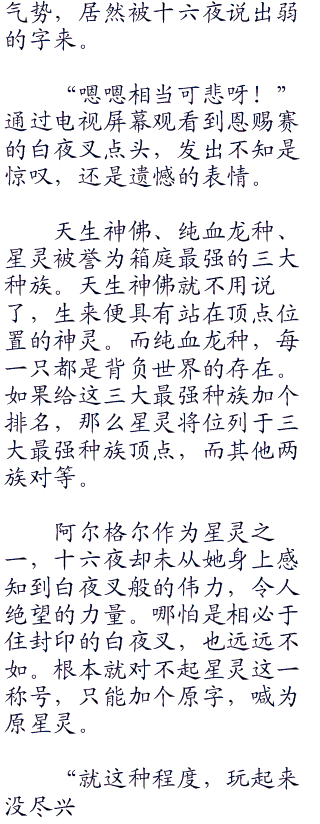 气势，居然被十六夜说出弱
的字来。
“嗯嗯相当可悲呀！”
通过电视屏幕观看到恩赐赛
的白夜叉点头，发出不知是
惊叹，还是遗憾的表情。
天生神佛、纯血龙种、
星灵被誉为箱庭最强的三大
种族。天生神佛就不用说
了，生来便具有站在顶点位
置的神灵。而纯血龙种，每
一只都是背负世界的存在。
如果给这三大最强种族加个
排名，那么星灵将位列于三
大最强种族顶点，而其他两
族对等。
阿尔格尔作为星灵之
一，十六夜却未从她身上感
知到白夜叉般的伟力，令人
绝望的力量。哪怕是相必于
住封印的白夜叉，也远远不
如。根本就对不起星灵这一
称号，只能加个原字，喊为
原星灵。
“就这种程度，玩起来
没尽兴